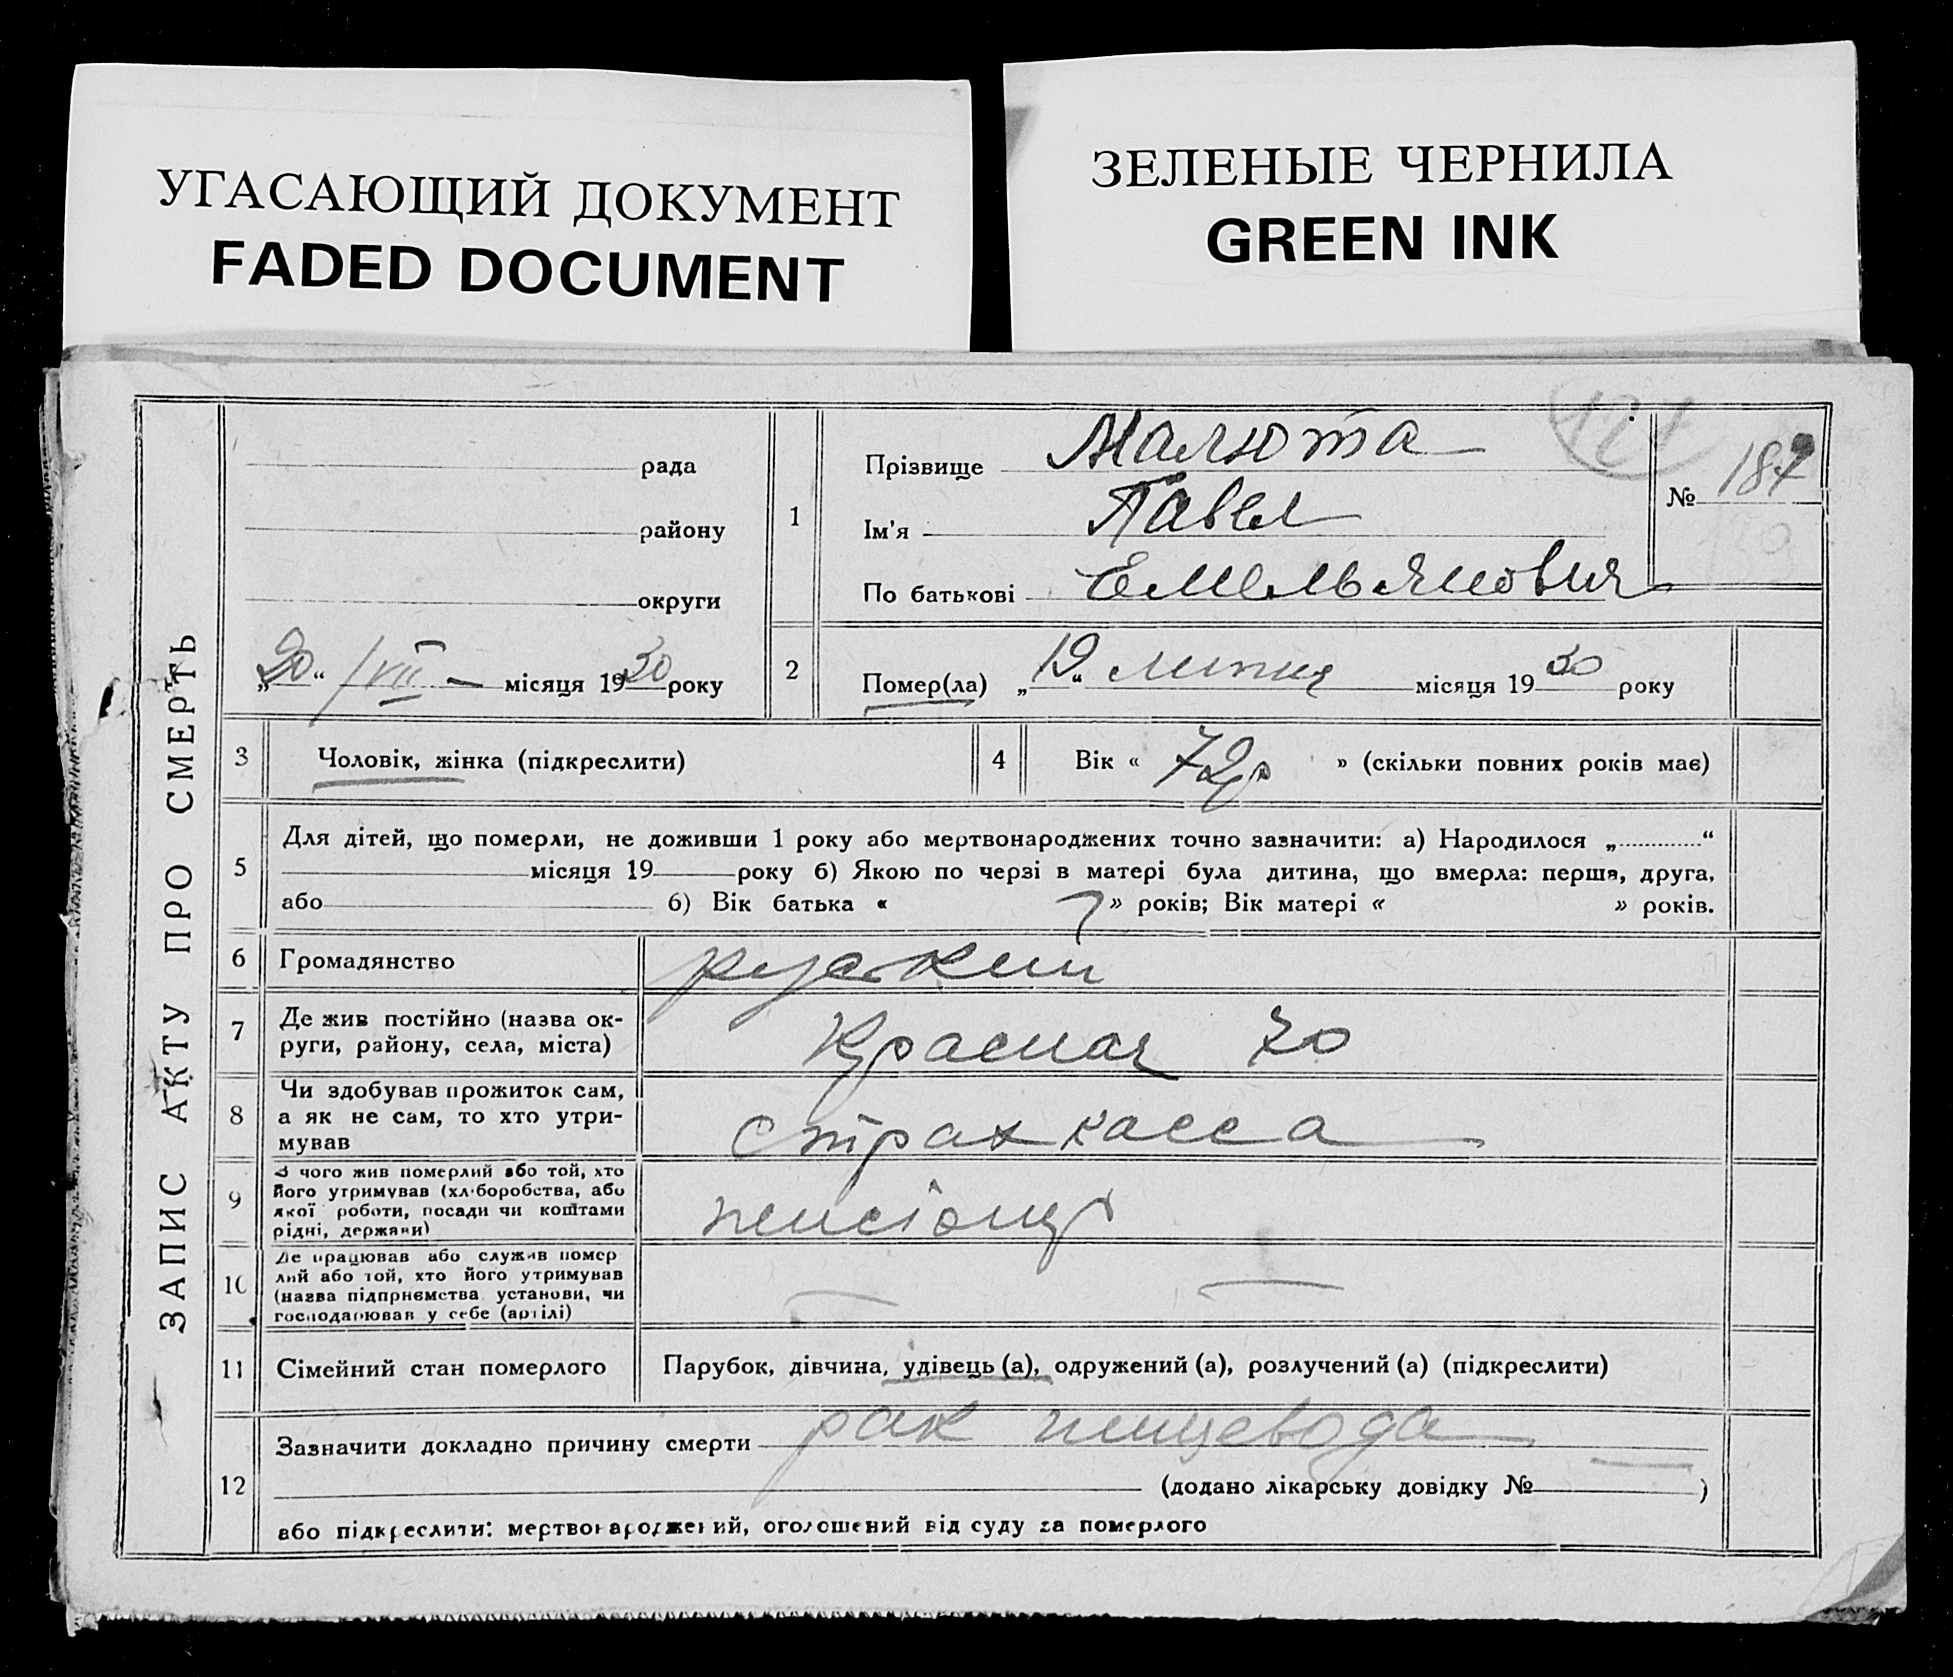 УГАСАЮЩИЙ ДОКУМЕНТ
FADED DOCUMENT
ЗЕЛЕНЫЕ ЧЕРНИЛА
GREEN INK
ЗАПИС АКТУ ПРО СМЕРТЬ
рада
району
округи
„20“ /VII месяця 1930 року
1
Прізвище Малюта
Ім'я Павел
По батькові Емельянович
№ 187
2
Помер(ла) „19“ липня місяця 1930 року
3 Чоловік, жінка (підкреслити)
4 Вік « 72 р » (скільки повних років має)
5
Для дітей, що померли, не доживши 1 року або мертвонароджених точно зазначити: а) Народилося „............“
місяця 19 року б) Якою по черзі в матері була дитина, що вмерла: перша, друга,
або б) Вік батька « » років; Вік матері « » років.
6 Громадянство руский
7 Де жив постійно (назва ок-
руги, району, села, міста) Красная 70
8 Чи здобував прожиток сам,
а як не сам, то хто утри-
мував страхкасса
9 З чого жив померлий або той, хто
його утримував (хліборобства, або
якої роботи, посади чи коштами
рідні, держави) пенсіонер
10 Де працював або служив помер
лий або той, хто його утримував
(назва підприємства установи, чи
господарював у себе (артілі)
11 Сімейний стан померлого Парубок, дівчина, удівець (а), одружений (а), розлучений (а) (підкреслити)
12
Зазначити докладно причину смерти рак пищевода
(додано лікарську довідку № )
або підкреслити: мертвонароджений, оголошений від суду за померлого